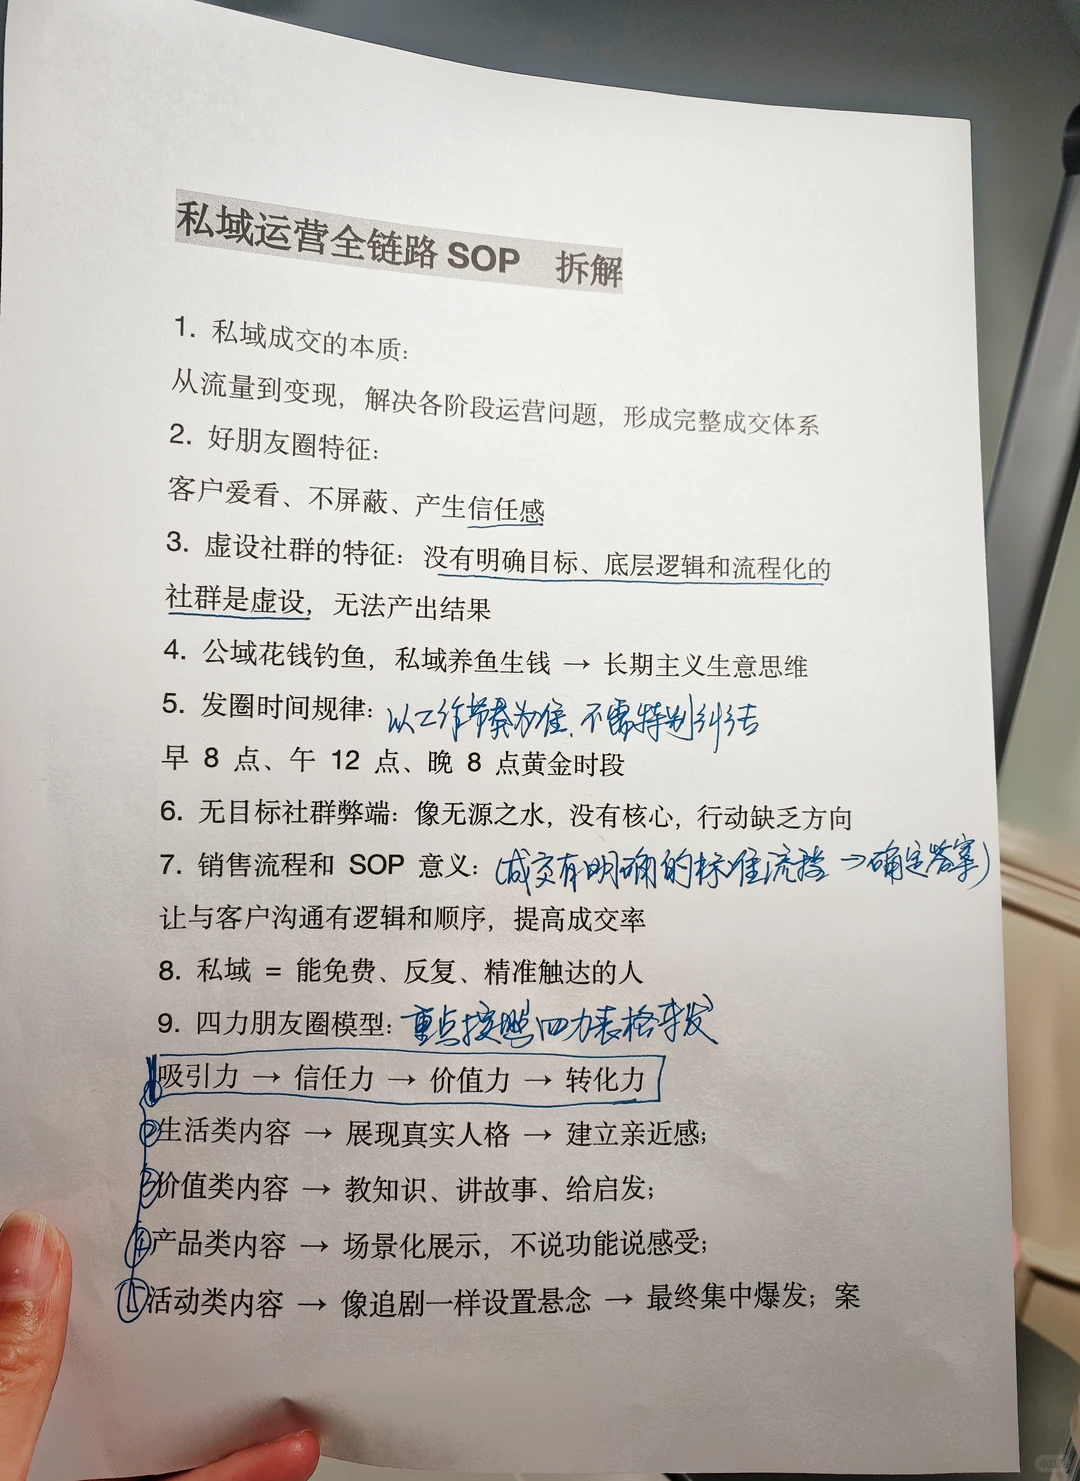 私域运营全链路 SOP 拆解
1. 私域成交的本质：
从流量到变现，解决各阶段运营问题，形成完整成交体系
2. 好朋友圈特征：
客户爱看、不屏蔽、产生信任感
3. 虚设社群的特征：没有明确目标、底层逻辑和流程化的
社群是虚设，无法产出结果
4. 公域花钱钓鱼，私域养鱼生钱 → 长期主义生意思维
5. 发圈时间规律：以工作节奏为准、不需特别纠结
早 8 点、午 12 点、晚 8 点黄金时段
6. 无目标社群弊端：像无源之水，没有核心，行动缺乏方向
7. 销售流程和 SOP 意义：（成交有明确的标准流程 → 确定答案）
让与客户沟通有逻辑和顺序，提高成交率
8. 私域 = 能免费、反复、精准触达的人
9. 四力朋友圈模型：重点按照四力表格来发
①吸引力 → 信任力 → 价值力 → 转化力
②生活类内容 → 展现真实人格 → 建立亲近感；
③价值类内容 → 教知识、讲故事、给启发；
④产品类内容 → 场景化展示，不说功能说感受；
⑤活动类内容 → 像追剧一样设置悬念 → 最终集中爆发；案